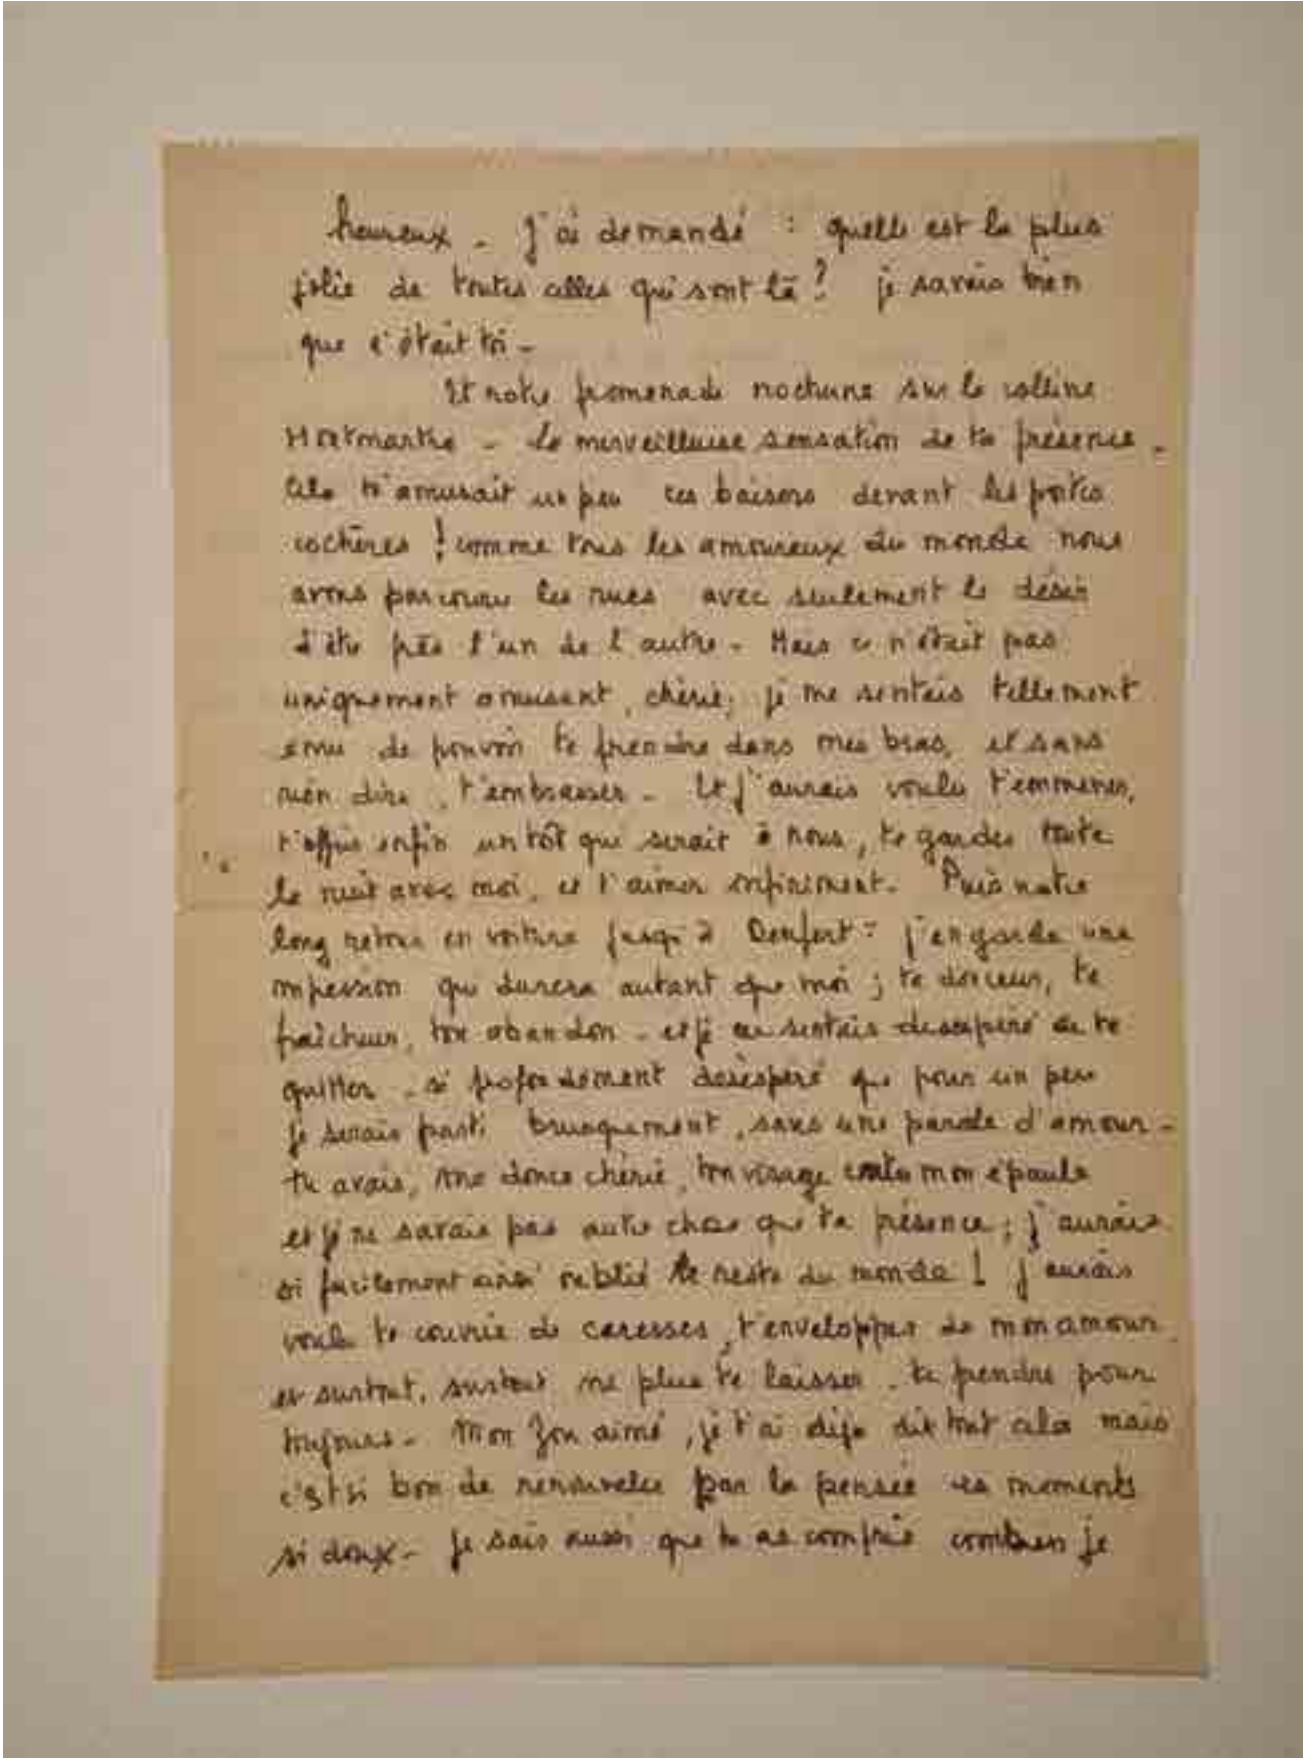 heureux - J'ai demandé : quelle est la plus
jolie de toutes celles qui sont là ? je savais bien
que c'était toi -
Et notre promenade nocturne sur la colline
Montmartre - la merveilleuse sensation de ta présence -
Cela t'amusait un peu ces baisers devant les portes
cochères ! comme tous les amoureux du monde nous
avons parcouru les rues avec seulement le désir
d'être près l'un de l'autre - Mais ce n'était pas
uniquement amusant, chérie ; je me sentais tellement
ému de pouvoir te prendre dans mes bras, et sans
rien dire, t'embrasser - Et j'aurais voulu t'emmener,
t'offrir enfin un toît qui serait à nous, te garder toute
la nuit avec moi, et t'aimer infiniment. Puis notre
long retour en voiture jusqu'à Denfert : j'en garde une
impression qui durera autant que moi ; ta douceur, ta
fraîcheur, ton abandon - et je me sentais désespéré de te
quitter - si profondément désespéré que pour un peu
je serais parti brusquement, sans une parole d'amour -
tu avais, ma douce chérie, ton visage contre mon épaule
et je ne savais pas autre chose que ta présence ; j'aurais
si facilement ainsi oublié le reste du monde ! j'aurais
voulu te couvrir de caresses, t'envelopper de mon amour
et surtout, surtout ne plus te laisser - te prendre pour
toujours - Mon aimé, je t'ai déjà dit tout cela mais
c'est si bon de renouveler par la pensée ces moments
si doux - Je sais aussi que tu as compris combien je